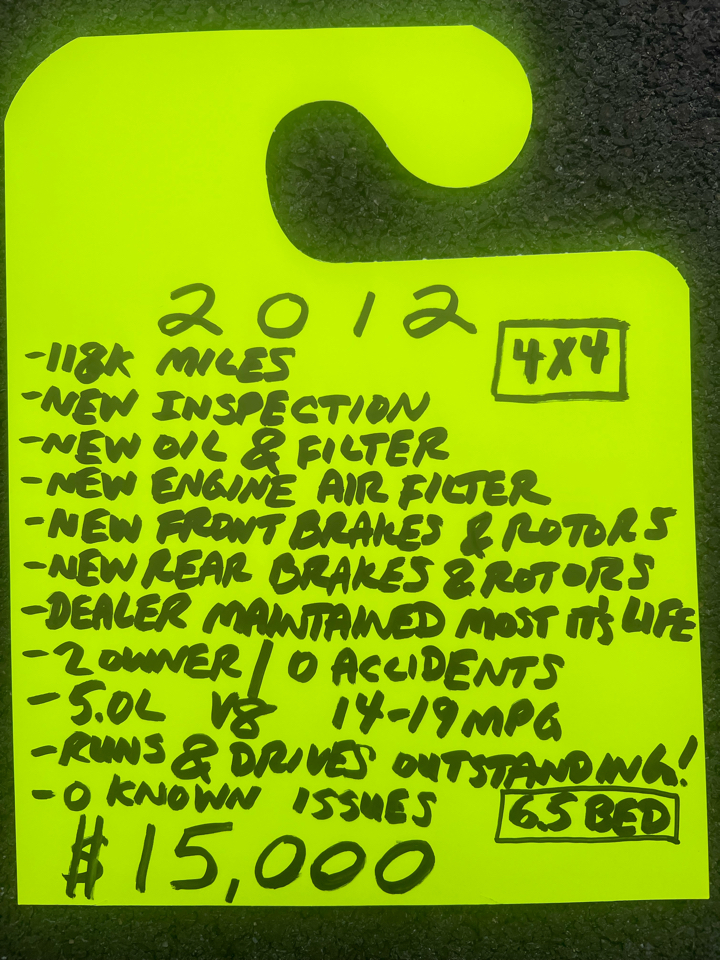 2012
4X4
-118K MILES
-NEW INSPECTION
-NEW OIL & FILTER
-NEW ENGINE AIR FILTER
-NEW FRONT BRAKES & ROTORS
-NEW REAR BRAKES & ROTORS
-DEALER MAINTAINED MOST IT'S LIFE
-2 OWNER / 0 ACCIDENTS
-5.0L V8 14-19 MPG
-RUNS & DRIVES OUTSTANDING!
-0 KNOWN ISSUES
6.5 BED
$15,000